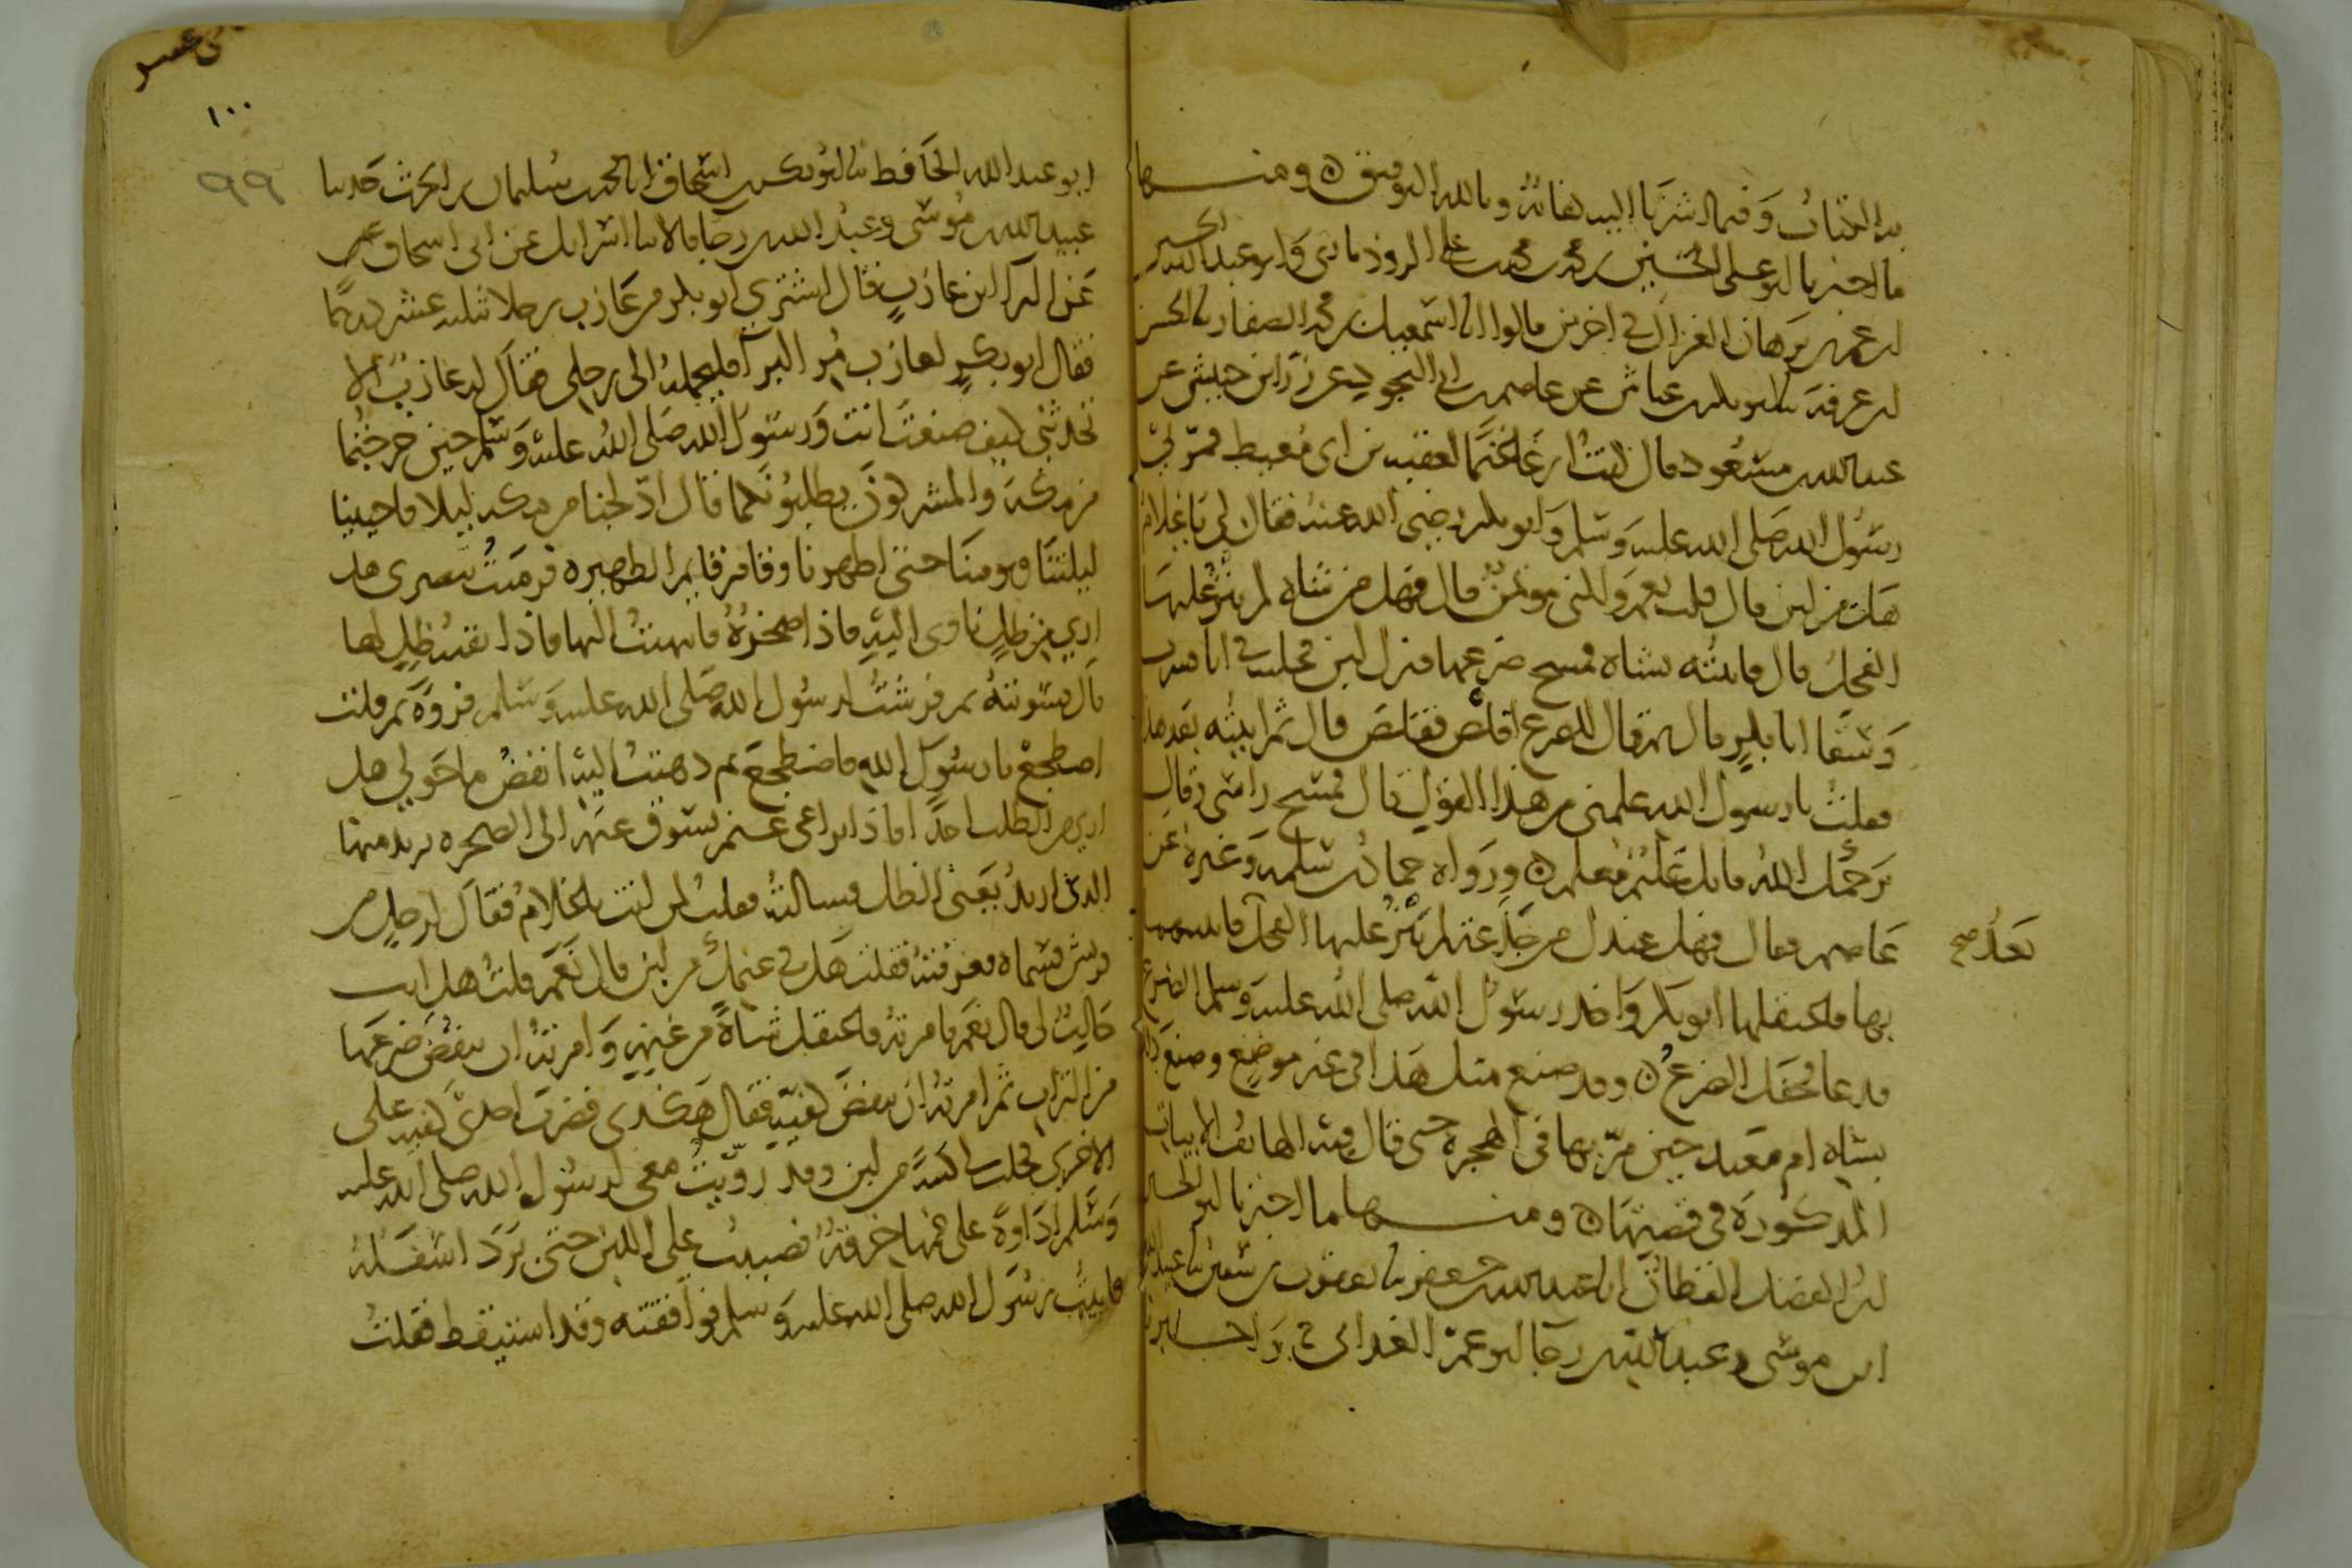 هذا الكتاب وفيما اشرنا اليه كفاية وبالله التوفيق ومنها
ما اخبرنا ابو علي الحسين بن محمد بن محمد بن علي الروذباري وابو عبد الله الحسين
بن عمر بن برهان الغزال في اخرين قالوا انا اسمعيل بن محمد الصفار نا الحسن
بن عرفة نا ابو بكر بن عياش عن عاصم بن ابي النجود عن زر ابن حبيش عن
عبد الله بن مسعود قال كنت ارعى غنما لعقبة بن ابي معيط فمر بي
رسول الله صلى الله عليه وسلم وابو بكر رضي الله عنه فقال لي يا غلام
هل من لبن قال قلت نعم ولكني مؤتمن قال فهل من شاة لم ينز عليها
الفحل قال فاتيته بشاة فمسح ضرعها فنزل لبن فحلب في انا فشرب
وسقا ابا بكر قال ثم قال للضرع اقلص فقلص قال ثم اتيته بعد هذا
فقلت يا رسول الله علمني من هذا القول قال فمسح راسي وقال
يرحمك الله فانك غليم معلم ورواه حماد بن سلمة وغيره عن
عاصم وقال فهل عندك من جذعة لم ينز عليها الفحل فاتيتهما
بعد صح
بها فاعتقلها ابو بكر واخذ رسول الله صلى الله عليه وسلم الضرع
فدعا فحفل الضرع وقد صنع مثل هذا في غير موضع وصنع ذلك
بشاة ام معبد حين مر بها في الهجرة حتى قال فيه الهاتف الابيات
المذكورة في قصتها ومنها ما اخبرنا ابو الحسين
بن الفضل القطان انا عبد الله بن جعفر نا يعقوب بن سفين نا عبيد الله
ابن موسى وعبد الله بن رجا ابو عمر الغداني ح واخبرنا
١٠٠
٩٩
ابو عبد الله الحافظ نا ابو بكر بن اسحاق انا محمد بن سليمان بن الحرث حدثنا
عبيد الله بن موسى وعبد الله بن رجا قالا نا اسرائل عن ابي اسحاق
عن البرا ابن عازب قال اشترى ابو بكر من عازب رحلا بثلثة عشر درهما
فقال ابو بكر لعازب مر البرآ فليحمله الى رحلي فقال له عازب الا
تحدثني كيف صنعت انت ورسول الله صلى الله عليه وسلم حين خرجتما
من مكة والمشركون يطلبونكما قال ادلجنا من مكة ليلا فاحيينا
ليلتنا ويومنا حتى اظهرنا وقام قايم الظهيرة فرميت ببصري هل
ارى من ظل ناوى اليه فاذا صخرة فانتهيت اليها فاذا بقية ظل لها
قال فسويته ثم فرشت لرسول الله صلى الله عليه وسلم فروة ثم قلت
اضطجع يا رسول الله فاضطجع ثم ذهبت انفض ما حولي هل
ارى من الطلب احدا فاذا براعي غنم يسوق غنمه الى الصخرة يريد منها
الذي اريد يعني الظل فسالته فقلت لمن انت يا غلام فقال لرجل من
قريش فسماه فعرفته فقلت هل في غنمك من لبن قال نعم قلت هل انت
حالب لي قال نعم فامرته فاعتقل شاة من غنمه وامرته ان ينفض ضرعها
من التراب ثم امرته ان ينفض كفيه فقال هكذى فضرب احدى كفيه على
الاخرى فحلب كثبة من لبن وقد رويت معي لرسول الله صلى الله عليه
وسلم اداوة على فمها خرقة فصببت على اللبن حتى برد اسفله
فاتيت رسول الله صلى الله عليه وسلم فوافقته وقد استيقظ فقلت